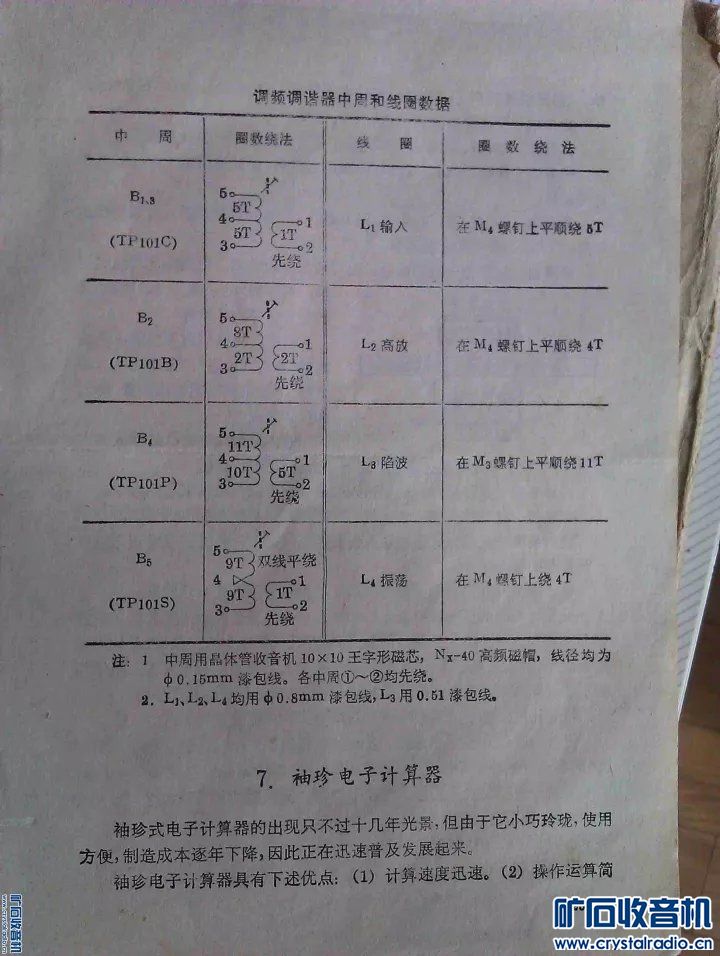 调频调谐器中周和线圈数据
中 周 圈数绕法 线 圈 圈 数 绕 法
B1、3
(TP101C)
5
5T
4
5T
3
1T
1
2
先绕
L1 输入
在 M4 螺钉上平顺绕 5T
B2
(TP101B)
5
8T
4
2T
3
2T
1
2
先绕
L2 高放
在 M4 螺钉上平顺绕 4T
B4
(TP101P)
5
11T
4
10T
3
5T
1
2
先绕
L3 陷波
在 M3 螺钉上平顺绕 11T
B5
(TP101S)
5
9T
双线平绕
4
9T
3
1T
1
2
先绕
L4 振荡
在 M4 螺钉上绕 4T
注: 1 中周用晶体管收音机 10×10 王字形磁芯, NX-40 高频磁帽, 线径均为
φ0.15mm 漆包线。各中周①~②均先绕。
2. L1、L2、L4 均用 φ0.8mm 漆包线, L3 用 0.51 漆包线。
7. 袖珍电子计算器
袖珍式电子计算器的出现只不过十几年光景, 但由于它小巧玲珑, 使用
方便, 制造成本逐年下降, 因此正在迅速普及发展起来。
袖珍电子计算器具有下述优点: (1) 计算速度迅速。(2) 操作运算简
矿石收音机
www.crystalradio.cn
矿石收音机
www.crystalradio.cn